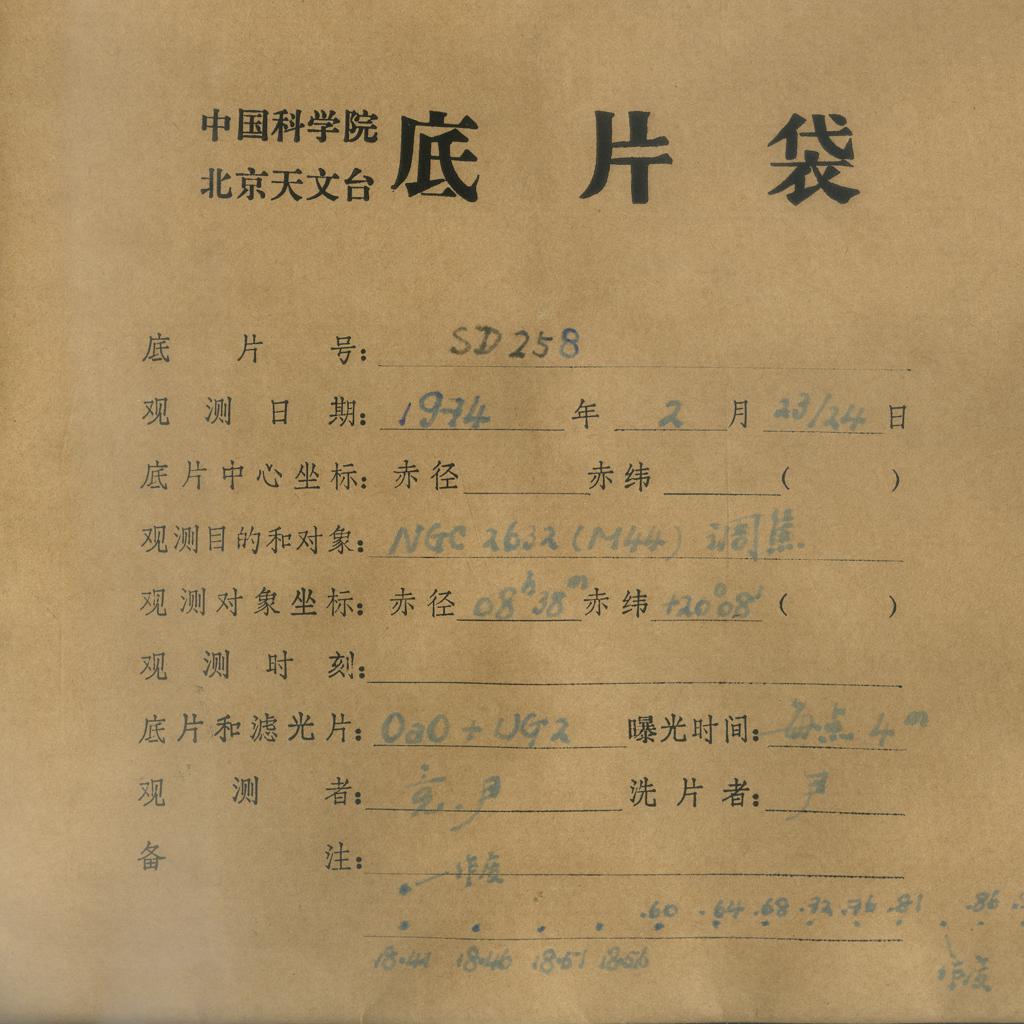 中国科学院
北京天文台
底片袋
底片号: SD 258
观测日期: 1974 年 2 月 23/24 日
底片中心坐标: 赤径 赤纬 ( )
观测目的和对象: NGC 2632 (M44) 调焦
观测对象坐标: 赤径 08h38m 赤纬 +20°08' ( )
观测时刻:
底片和滤光片: OaO + UG2 曝光时间: 每点 4m
观测者: 洗片者: 尹
备注:
.60 .64 .68 .72 .76 .81 .86
18.41 18.46 18.51 18.56